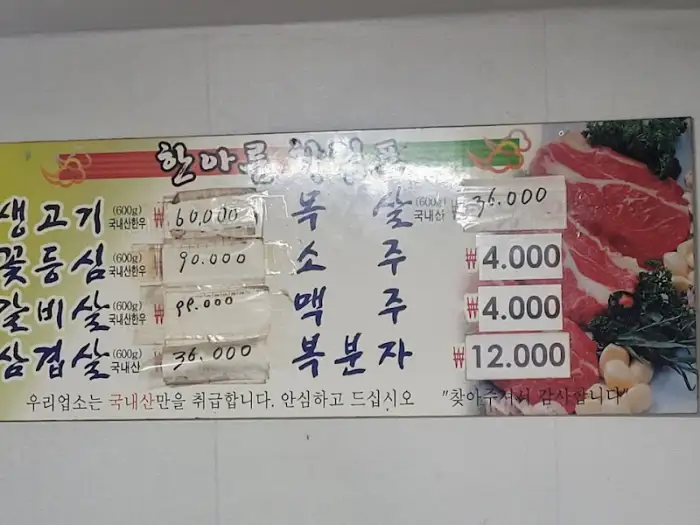 한아름
생고기 (600g) 국내산한우 ₩ 60,000 목 살 (600g) 국내산 ₩ 36.000
꽃등심 (600g) 국내산한우 ₩ 90.000 소 주 ₩ 4.000
갈비살 (600g) 국내산한우 ₩ 99.000 맥 주 ₩ 4.000
삼겹살 (600g) 국내산 ₩ 36.000 복분자 ₩ 12.000
우리업소는 국내산만을 취급합니다. 안심하고 드십시오 "찾아주셔서 감사합니다"